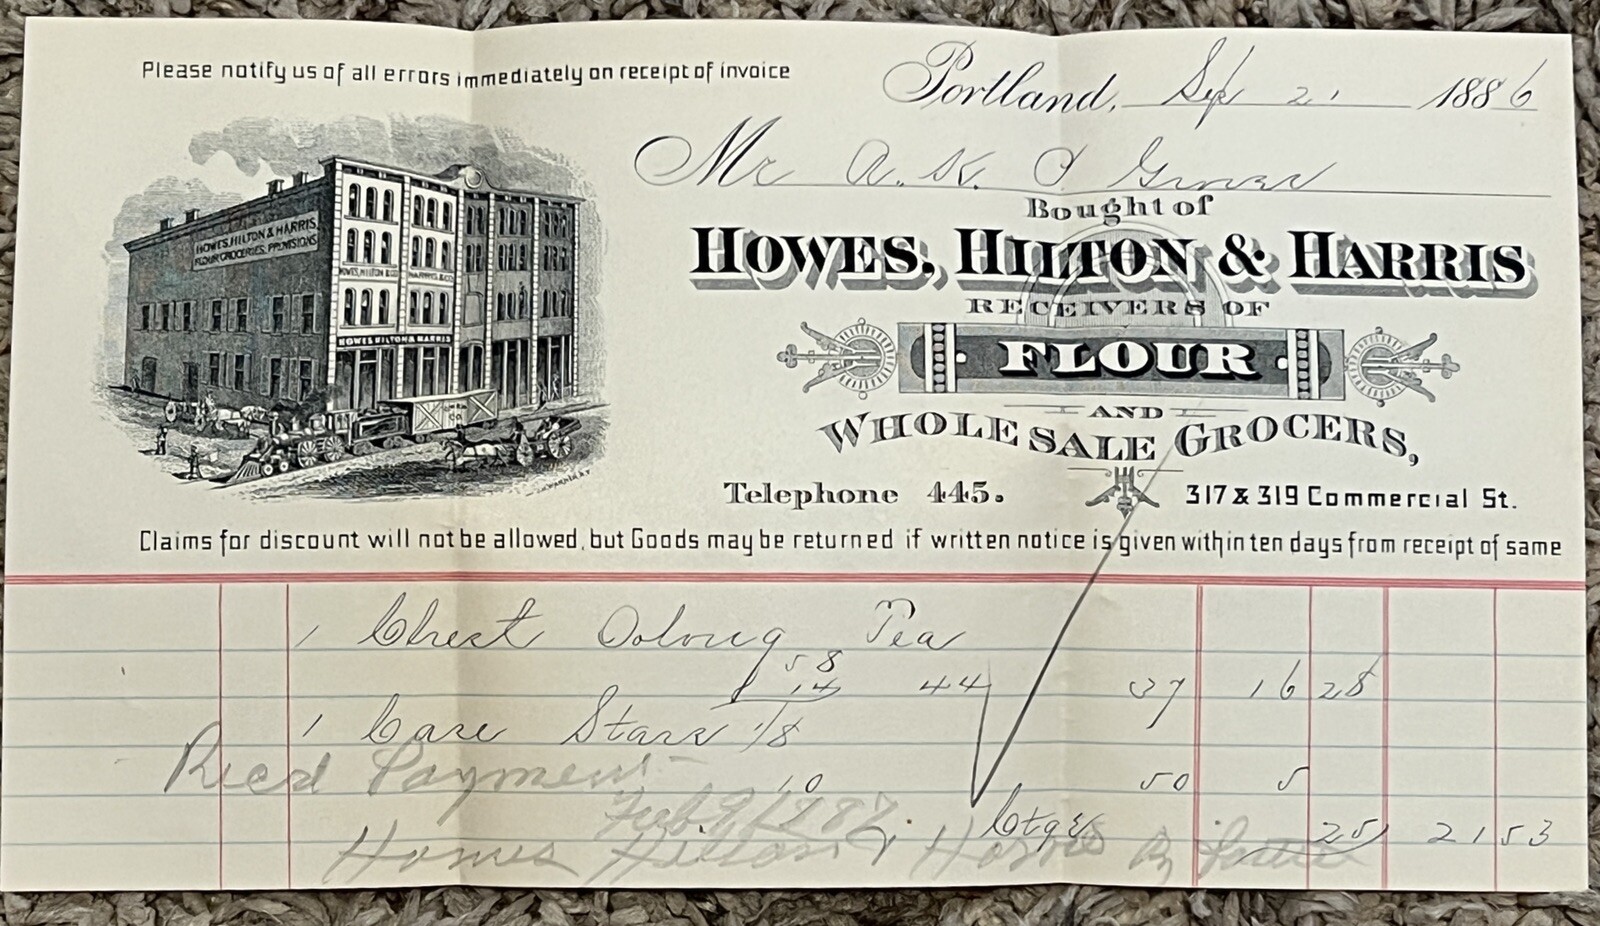 Please notify us of all errors immediately on receipt of invoice
Portland, Sep 21 1886
Mr A. K. P
Bought of
HOWES, HILTON & HARRIS
RECEIVERS OF
FLOUR
AND
WHOLESALE GROCERS,
Telephone 445. 317 & 319 Commercial St.
HOWES, HILTON & HARRIS,
FLOUR, GROCERIES, PROVISIONS
HOWES, HILTON & CO HARRIS & CO
HOWES HILTON & HARRIS
Claims for discount will not be allowed, but Goods may be returned if written notice is given within ten days from receipt of same
1 Chest Oolong Tea
58
14 44 37 16 28
1 Case Starr 1/8
10 50 5
Rec'd Payment
Feb 9/1887
Ctge 25 21 53
Howes Hilton & Harris By